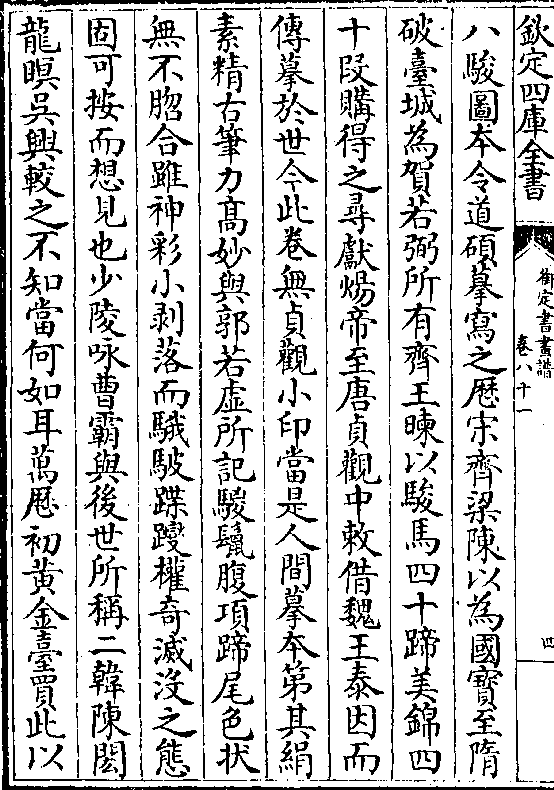 欽定四庫全書
御定書畫譜
卷八十一
四
八駿圖本令道碩摹寫之歴宋齊梁陳以為國寳至隋
破臺城為賀若弼所有齊王暕以駿馬四十蹄美錦四
十段購得之尋獻煬帝至唐貞觀中敕借魏王泰因而
傳摹於世今此卷無貞觀小印當是人間摹本第其絹
素精古筆力髙妙與郭若虛所記駿鬛腹項蹄尾色状
無不脗合雖神彩小剥落而駊騀蹀躞權奇滅没之態
固可按而想見也少陵咏曹霸與後世所稱二韓陳閎
龍瞑吳興較之不知當何如耳萬厯初黃金臺買此以